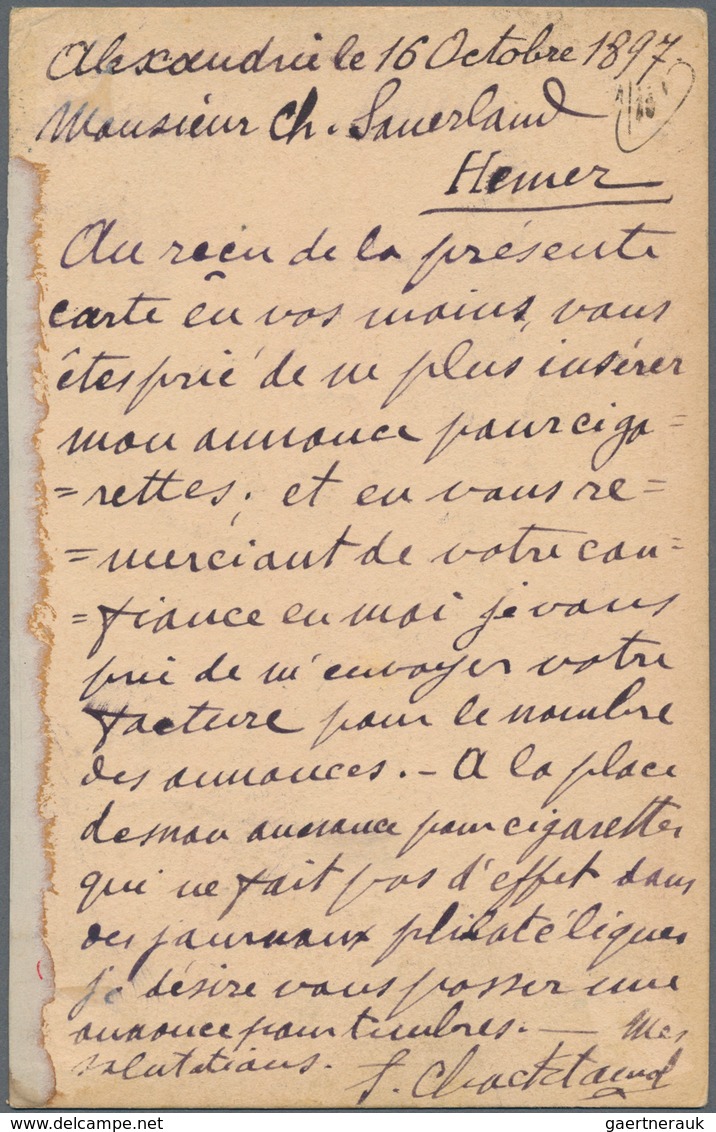 Alexandrie le 16 Octobre 1897
Monsieur Ch. Sauerland
Hemer
Au reçu de la présente
carte en vos mains, vous
êtes prié de ne plus insérer
mon annonce pour ciga=
=rettes; et en vous re=
=merciant de votre con=
=fiance en moi je vous
prie de m'envoyer votre
facture pour le nombre
des annonces. — A la place
de mon annonce pour cigarettes
qui ne fait pas d'effet dans
des journaux philatéliques
je désire vous passer une
annonce pour timbres. — Mes
salutations.
gaertnerauk